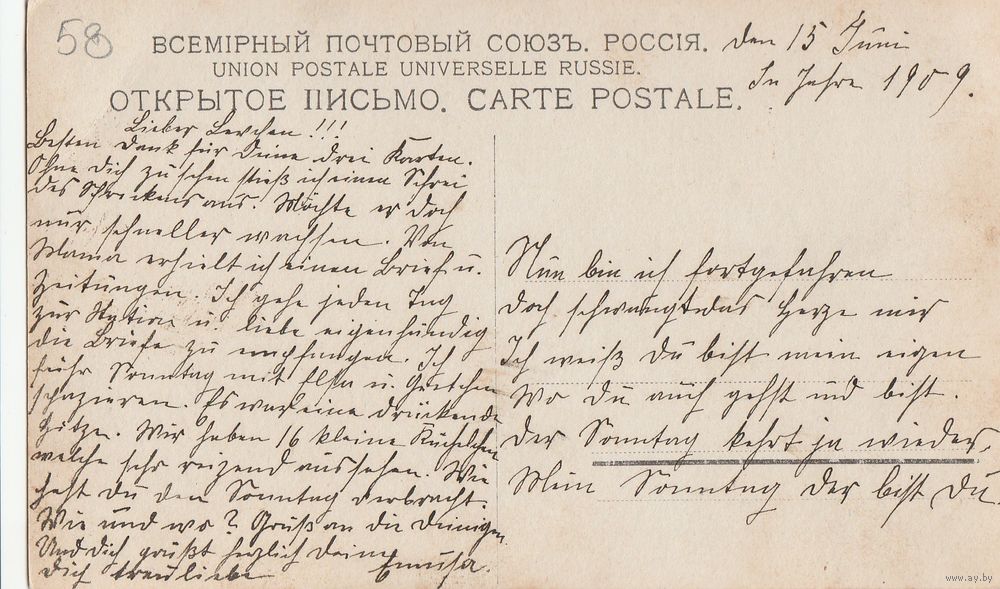 58
ВСЕМІРНЫЙ ПОЧТОВЫЙ СОЮЗЪ. РОССІЯ.
UNION POSTALE UNIVERSELLE RUSSIE.
ОТКРЫТОЕ ПИСЬМО. CARTE POSTALE.
den 15 Juni
Im Jahre 1909.
Lieber !!!
Besten Dank für Deine drei Karten.
Ohne Dich zu sehen stieß ich einen Schrei
des Schreckens aus. Möchte er doch
nur schneller wachsen. Von
Mama erhielt ich einen Brief u.
Zeitungen. Ich gehe jeden Tag
zur Station u. liebe eigenhändig
die Briefe zu empfangen. Ich
fuhr Sonntag mit Elsa u. Gretchen
spazieren. Es war eine drückende
Hitze. Wir haben 16 kleine Küchelchen
welche sehr reizend aussehen. Wie
hast du den Sonntag verbracht.
Wie und wo? Gruß an die Deinigen
Und Dich grüßt herzlich Deine
Dich treuliebe
Nun bin ich fortgefahren
Doch das Herze mir
Ich weiß Du bist mein eigen
Wo Du auch gehst und bist.
Der Sonntag kehrt ja wieder,
Mein Sonntag der bist Du.
www.ay.by